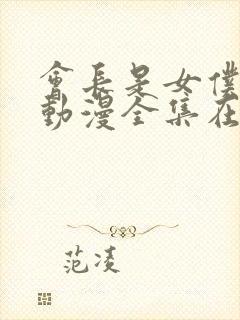 會長是女僕
動漫全集在
范凌